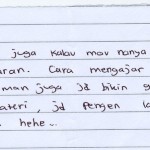 juga kalau mau nanya
aran. Cara mengajar
man juga jd bikin g
ateri, jd pengen la
hehe..